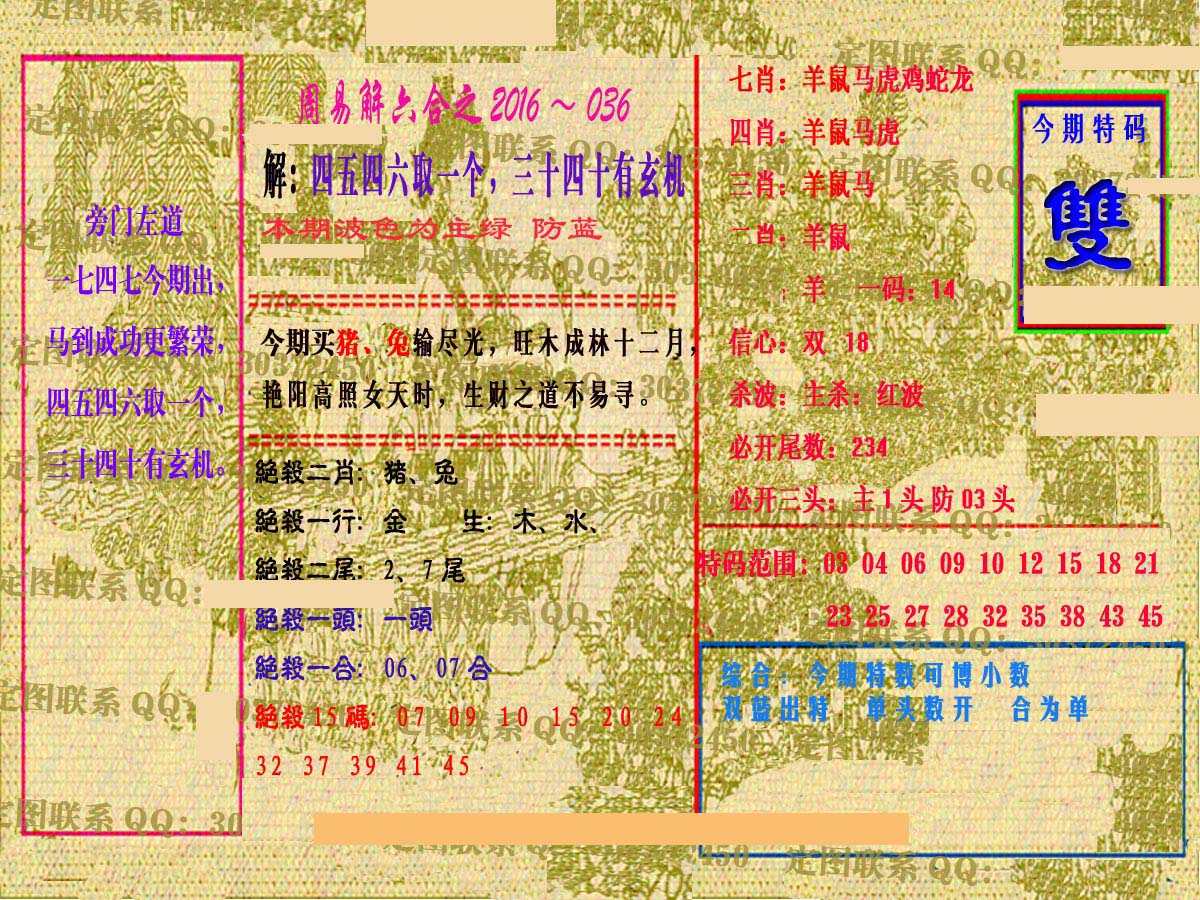 旁门左道
一七四七今期出，
马到成功更繁荣，
四五四六取一个，
三十四十有玄机。
周易解六合之2016～036
解：四五四六取一个，三十四十有玄机
本期波色为主绿 防蓝
今期买猪、兔输尽光，旺木成林十二月，
艳阳高照女天时，生财之道不易寻。
絕殺二肖：猪、兔
絕殺一行：金 生：木、水、
絕殺二尾：2、7尾
絕殺一頭：一頭
絕殺一合：06、07合
絕殺15碼：07 09 10 15 20 24
32 37 39 41 45
七肖：羊鼠马虎鸡蛇龙
四肖：羊鼠马虎
三肖：羊鼠马
二肖：羊鼠
羊 一码：14
信心：双 18
杀波：主杀：红波
必开尾数：234
必开三头：主1头防03头
今期特码
雙
特码范围：03 04 06 09 10 12 15 18 21
23 25 27 28 32 35 38 43 45
综合：今期特数可博小数
双蓝出特 单头数开 合为单